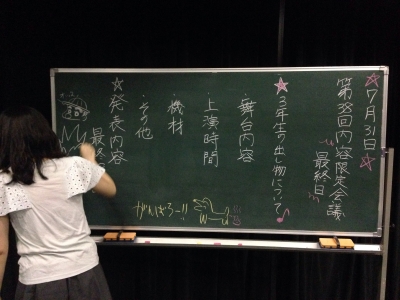 ☆7月31日☆
第38回内容限定会議
最終日
★3年生の出し物について♪
・舞台内容
・上演時間
・機材
・その他
☆発表内容
最終
がんばろー!!